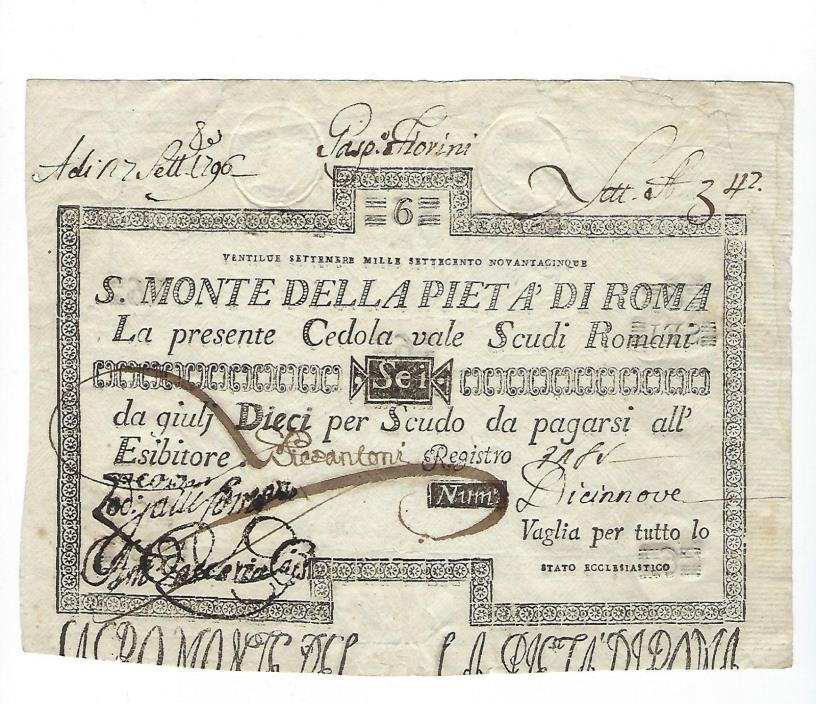 Adi 17 Sett. 1796
Gasp. Fiorini
Lett. A 3 42.
6
VENTIDUE SETTEMBRE MILLE SETTECENTO NOVANTACINQUE
S. MONTE DELLA PIETA' DI ROMA
La presente Cedola vale Scudi Romani
Sei
da giulj Dieci per Scudo da pagarsi all'
Esibitore. Registro
Num. Dicinnove
Vaglia per tutto lo
STATO ECCLESIASTICO
SACRO MONTE DEL LA PIETA' DI ROMA